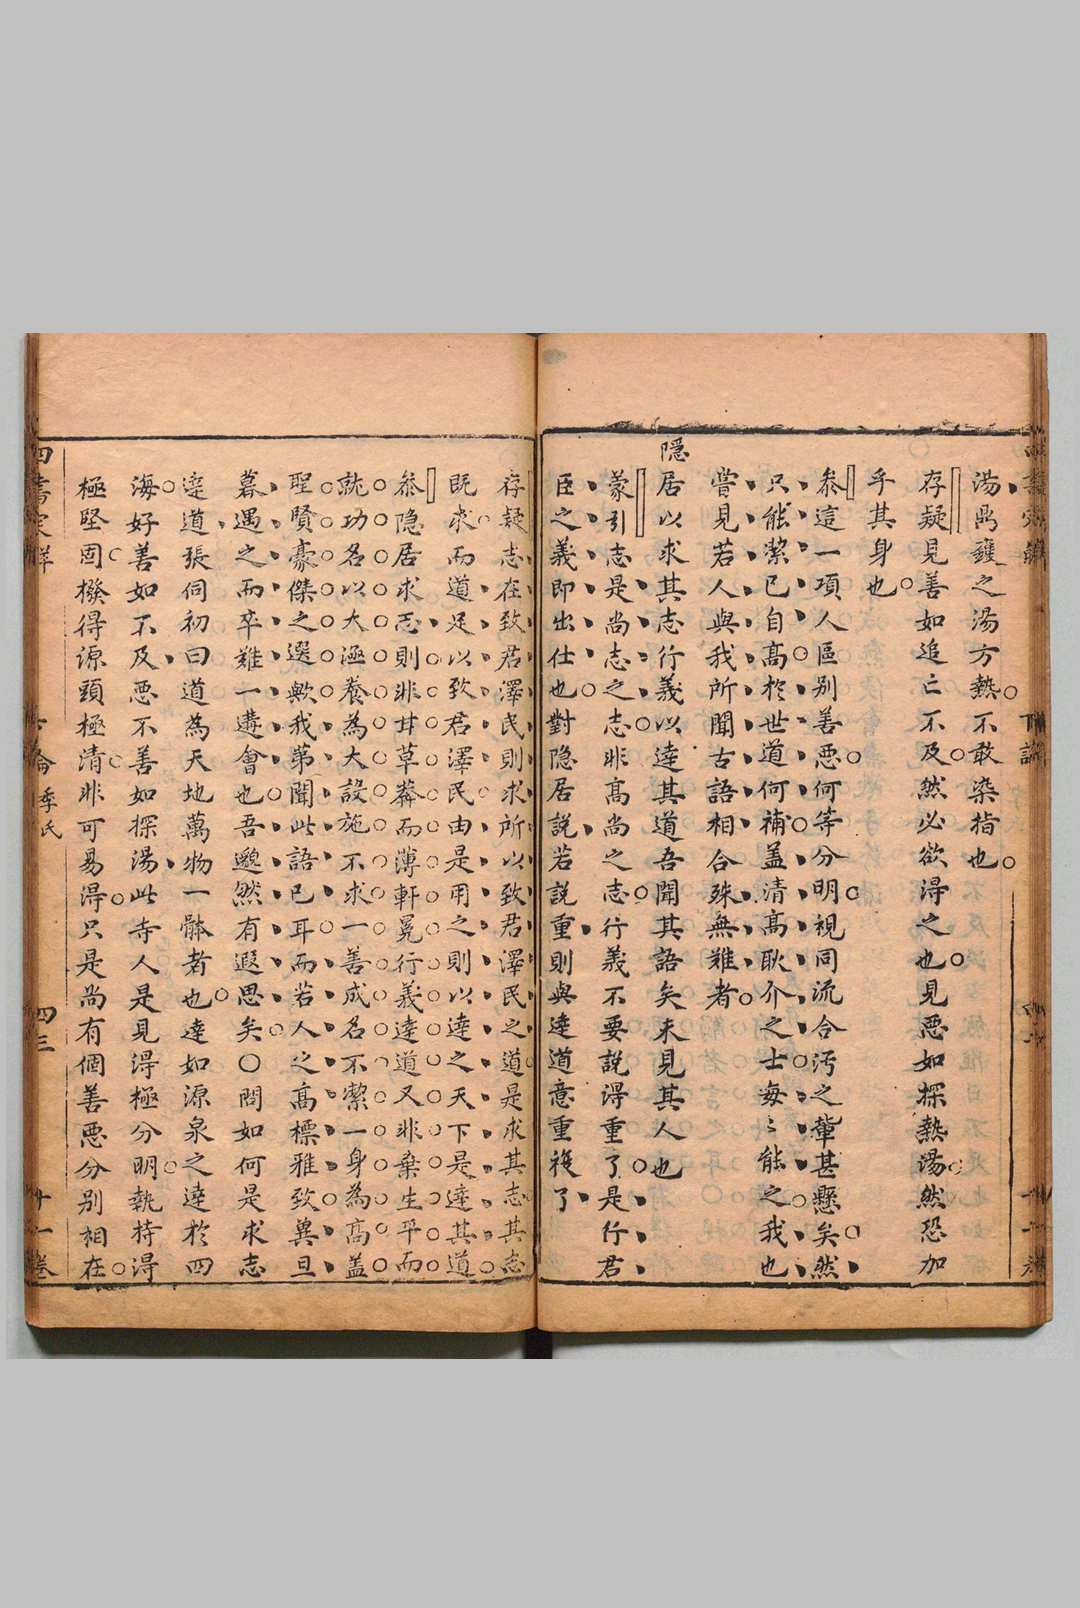 湯內鑊之湯方熱不敢染指也
存疑見善如追亡不及然必欲得之也見惡如探熱湯然恐加
乎其身也
叅這一項人區別善惡何等分明視同流合汚之輩甚懸矣然
只能潔已自髙於世道何補盖清髙耿介之士每〻能之我也
嘗見若人與我所聞古語相合殊無難者
隠居以求其志行義以達其道吾聞其語矣未見其人也
蒙引志是尚志之志非髙尚之志行義不要說得重了是行君
臣之義即出仕也對隠居說若説重則與達道意重複了
存疑志在致君澤民則求所以致君澤民之道是求其志其志
既求而道足以致君澤民由是用之則以達之天下是達其道
叅隠居求志則非甘草莽而薄軒冕行義達道又非棄生平而
就功名以大涵養為大設施不求一善成名不潔一身為髙盖
聖賢豪傑之選歟我第聞此語已耳而若人之髙標雅致異旦
暮遇之而卒難一遘會也吾邈然有遐思矣○問如何是求志
達道張侗初曰道為天地萬物一骵者也達如源泉之達於四
海好善如不及惡不善如探湯此寺人是見得極分明執持得
極堅固撥得源頭極清非可易得只是尚有個善惡分別相在
四書定解
下論
季氏
四三
十一卷